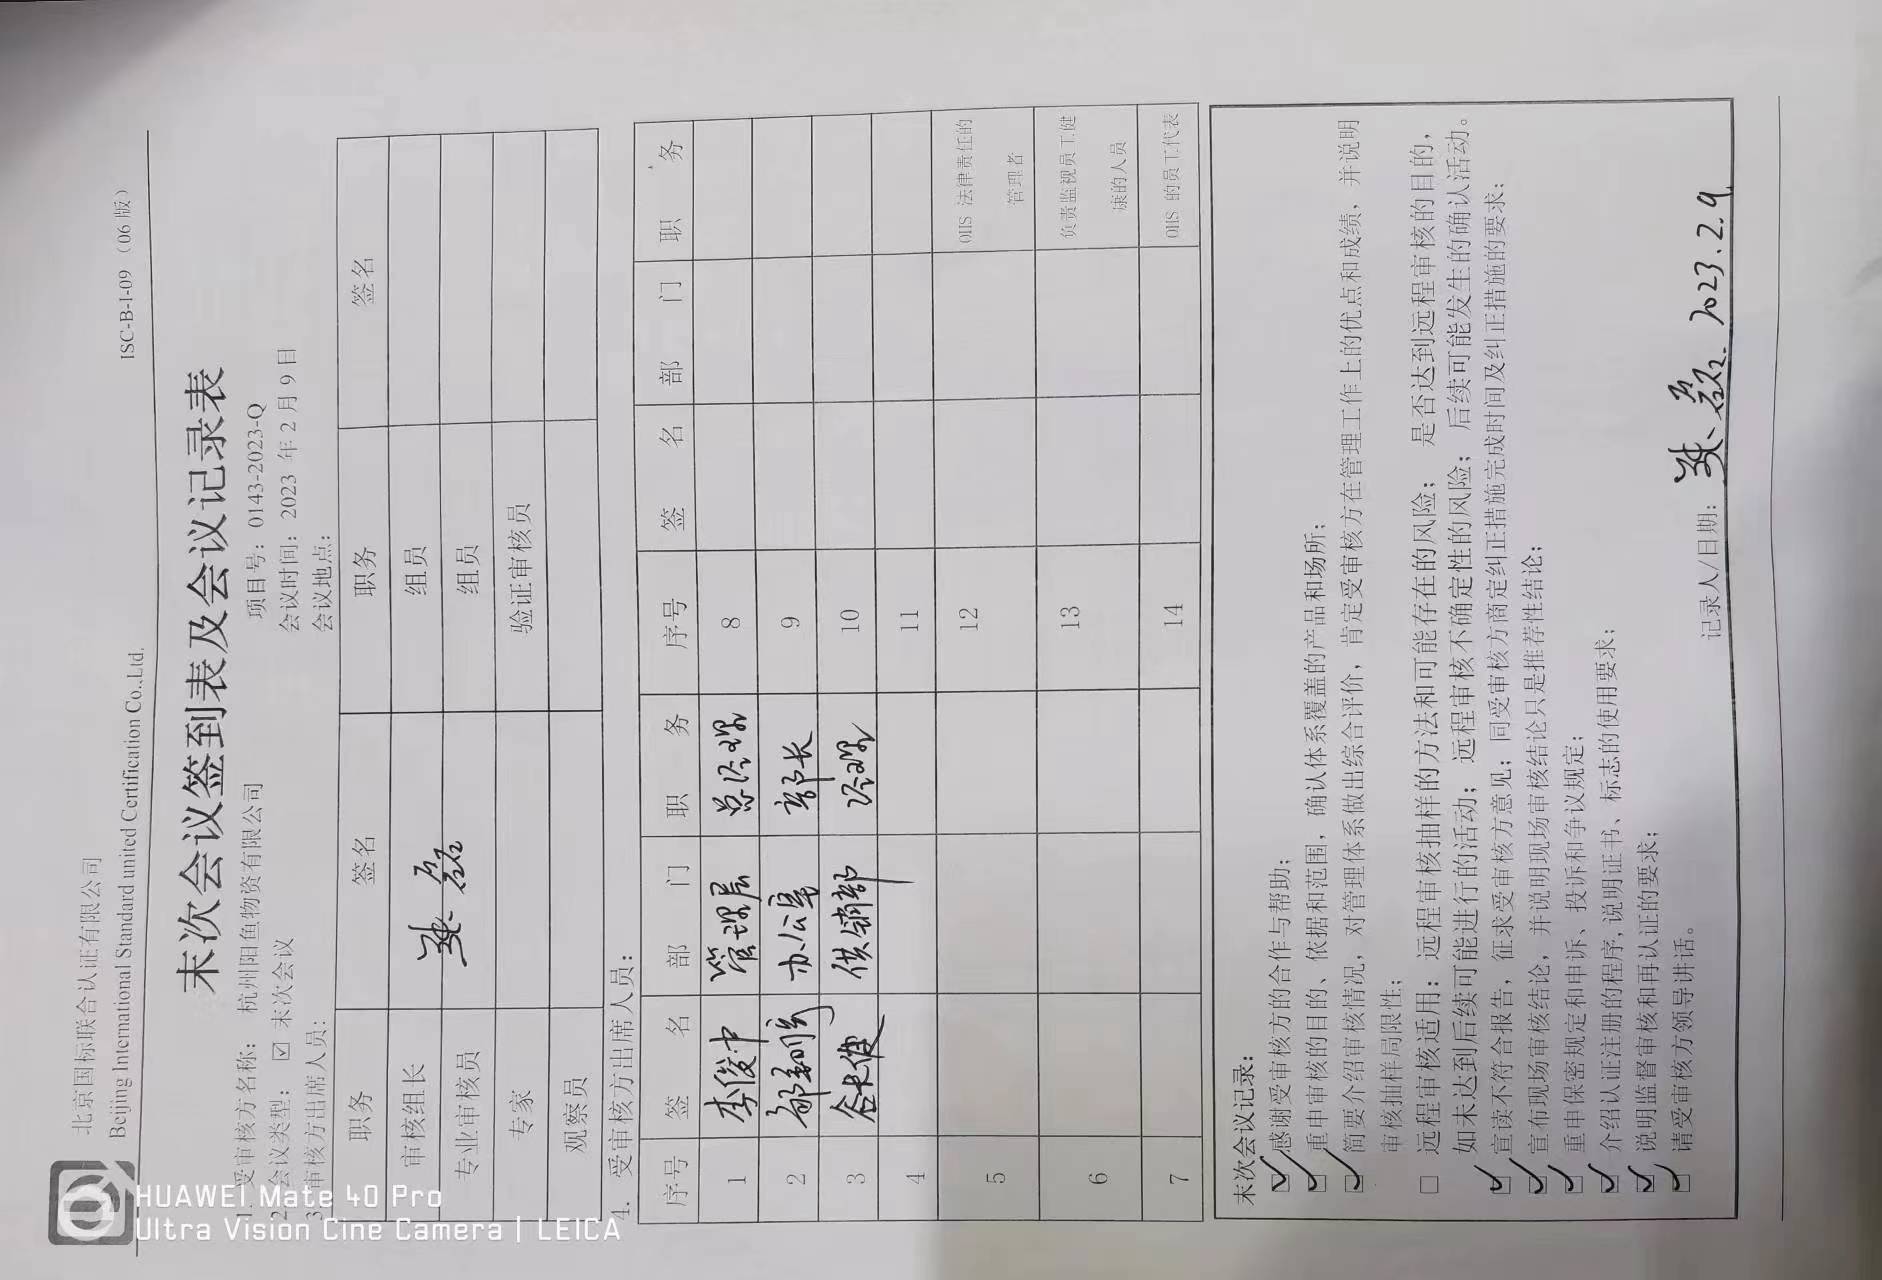 北京国标联合认证有限公司
Beijing International Standard united Certification Co.,Ltd.
ISC-B-I-09（06 版）
末次会议签到表及会议记录表
1. 受审核方名称： 杭州阳鱼物资有限公司
项目号：0143-2023-Q
2 会议类型： ☑ 末次会议
会议时间：2023 年 2 月 9 日
3 审核方出席人员：
会议地点：
职务 签名 职务 签名
审核组长 张磊 组员
专业审核员 组员
专家 验证审核员
观察员
4. 受审核方出席人员：
序号 签 名 部 门 职 务 序号 签 名 部 门 职 务
1 李俊中 管理层 总经理 8
2 办公室 部长 9
3 供销部 经理 10
4 11
5 12 OHS 法律责任的管理者
6 13 负责监视员工健康的人员
7 14 OHS 的员工代表
末次会议记录：
☑ 感谢受审核方的合作与帮助；
☑ 重申审核的目的、依据和范围，确认体系覆盖的产品和场所；
☑ 简要介绍审核情况，对管理体系做出综合评价，肯定受审核方在管理工作上的优点和成绩，并说明
审核抽样局限性；
□ 远程审核适用：远程审核抽样的方法和可能存在的风险；是否达到远程审核的目的，
如未达到后续可能进行的活动；远程审核不确定性的风险；后续可能发生的确认活动。
☑ 宣读不符合报告，征求受审核方意见；同受审核方商定纠正措施完成时间及纠正措施的要求；
☑ 宣布现场审核结论，并说明现场审核结论只是推荐性结论；
☑ 重申保密规定和申诉、投诉和争议规定；
☑ 介绍认证注册的程序,说明证书、标志的使用要求；
☑ 说明监督审核和再认证的要求；
☑ 请受审核方领导讲话。
记录人/日期： 张磊. 2023.2.9
HUAWEI Mate 40 Pro
Ultra Vision Cine Camera | LEICA